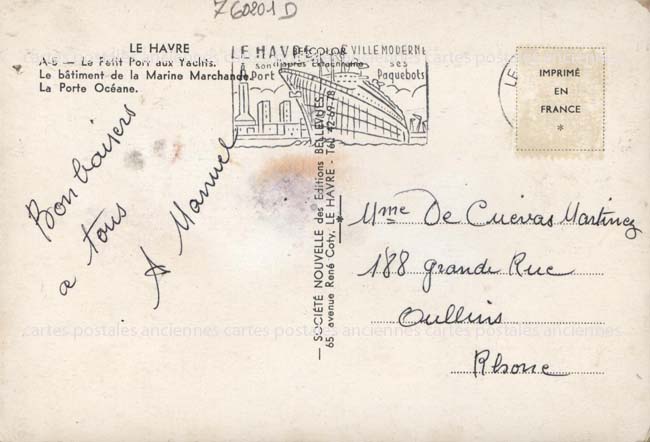 760201D
LE HAVRE
A-5 — Le Petit Port aux Yachts.
Le bâtiment de la Marine Marchande.
La Porte Océane.
LE HAVRE VILLE MODERNE
son ses
Port Paquebots
BELCOLOR
d'après Ektachrome
LE
IMPRIMÉ
EN
FRANCE
*
Bon baisers
a tous
A Manuel
— SOCIÉTÉ NOUVELLE des Editions BELLEVUES —
65, avenue René Coty, LE HAVRE - Tél. 42-69-78
Mme De Cuevas Martinez
188 Grande Rue
Oullins
Rhone
cartes postales anciennes cartes postales anciennes cartes postales anciennes
cartes postales anciennes cartes postales anciennes cartes postales anciennes